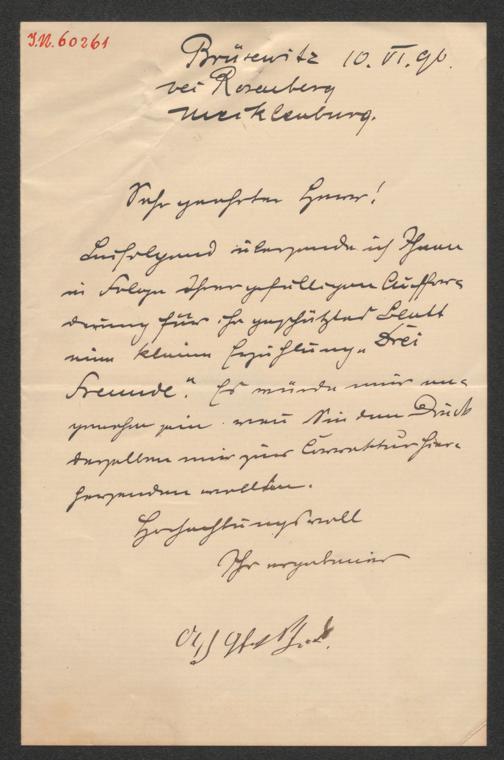 I.N. 60261
Brüsewitz 10. VI. 96.
bei Rosenberg
Mecklenburg.
Sehr geehrter Herr!
Beifolgend übersende ich Ihnen
in Folge Ihrer gefälligen Auffor-
derung für Ihr geschätztes Blatt
eine kleine Erzählung „Drei
Freunde“. Es würde mir an-
genehm sein wenn Sie den Druck
derselben mir zur Correktur hier-
hersenden wollten.
Hochachtungsvoll
Ihr ergebener